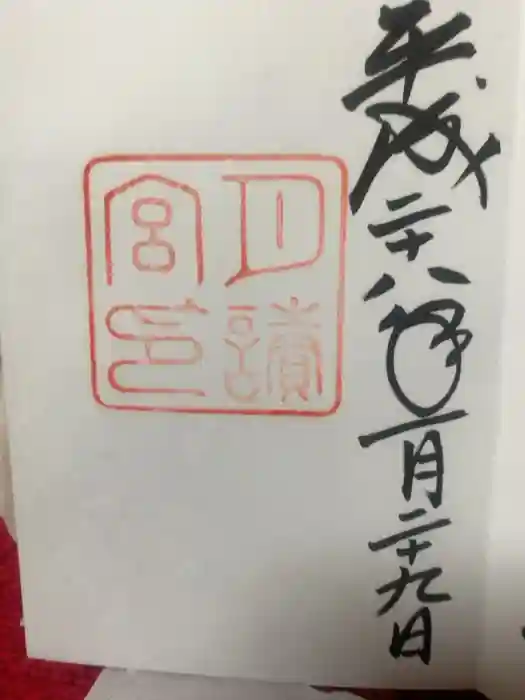 平成二十八年一月二十九日
月讀
宮印